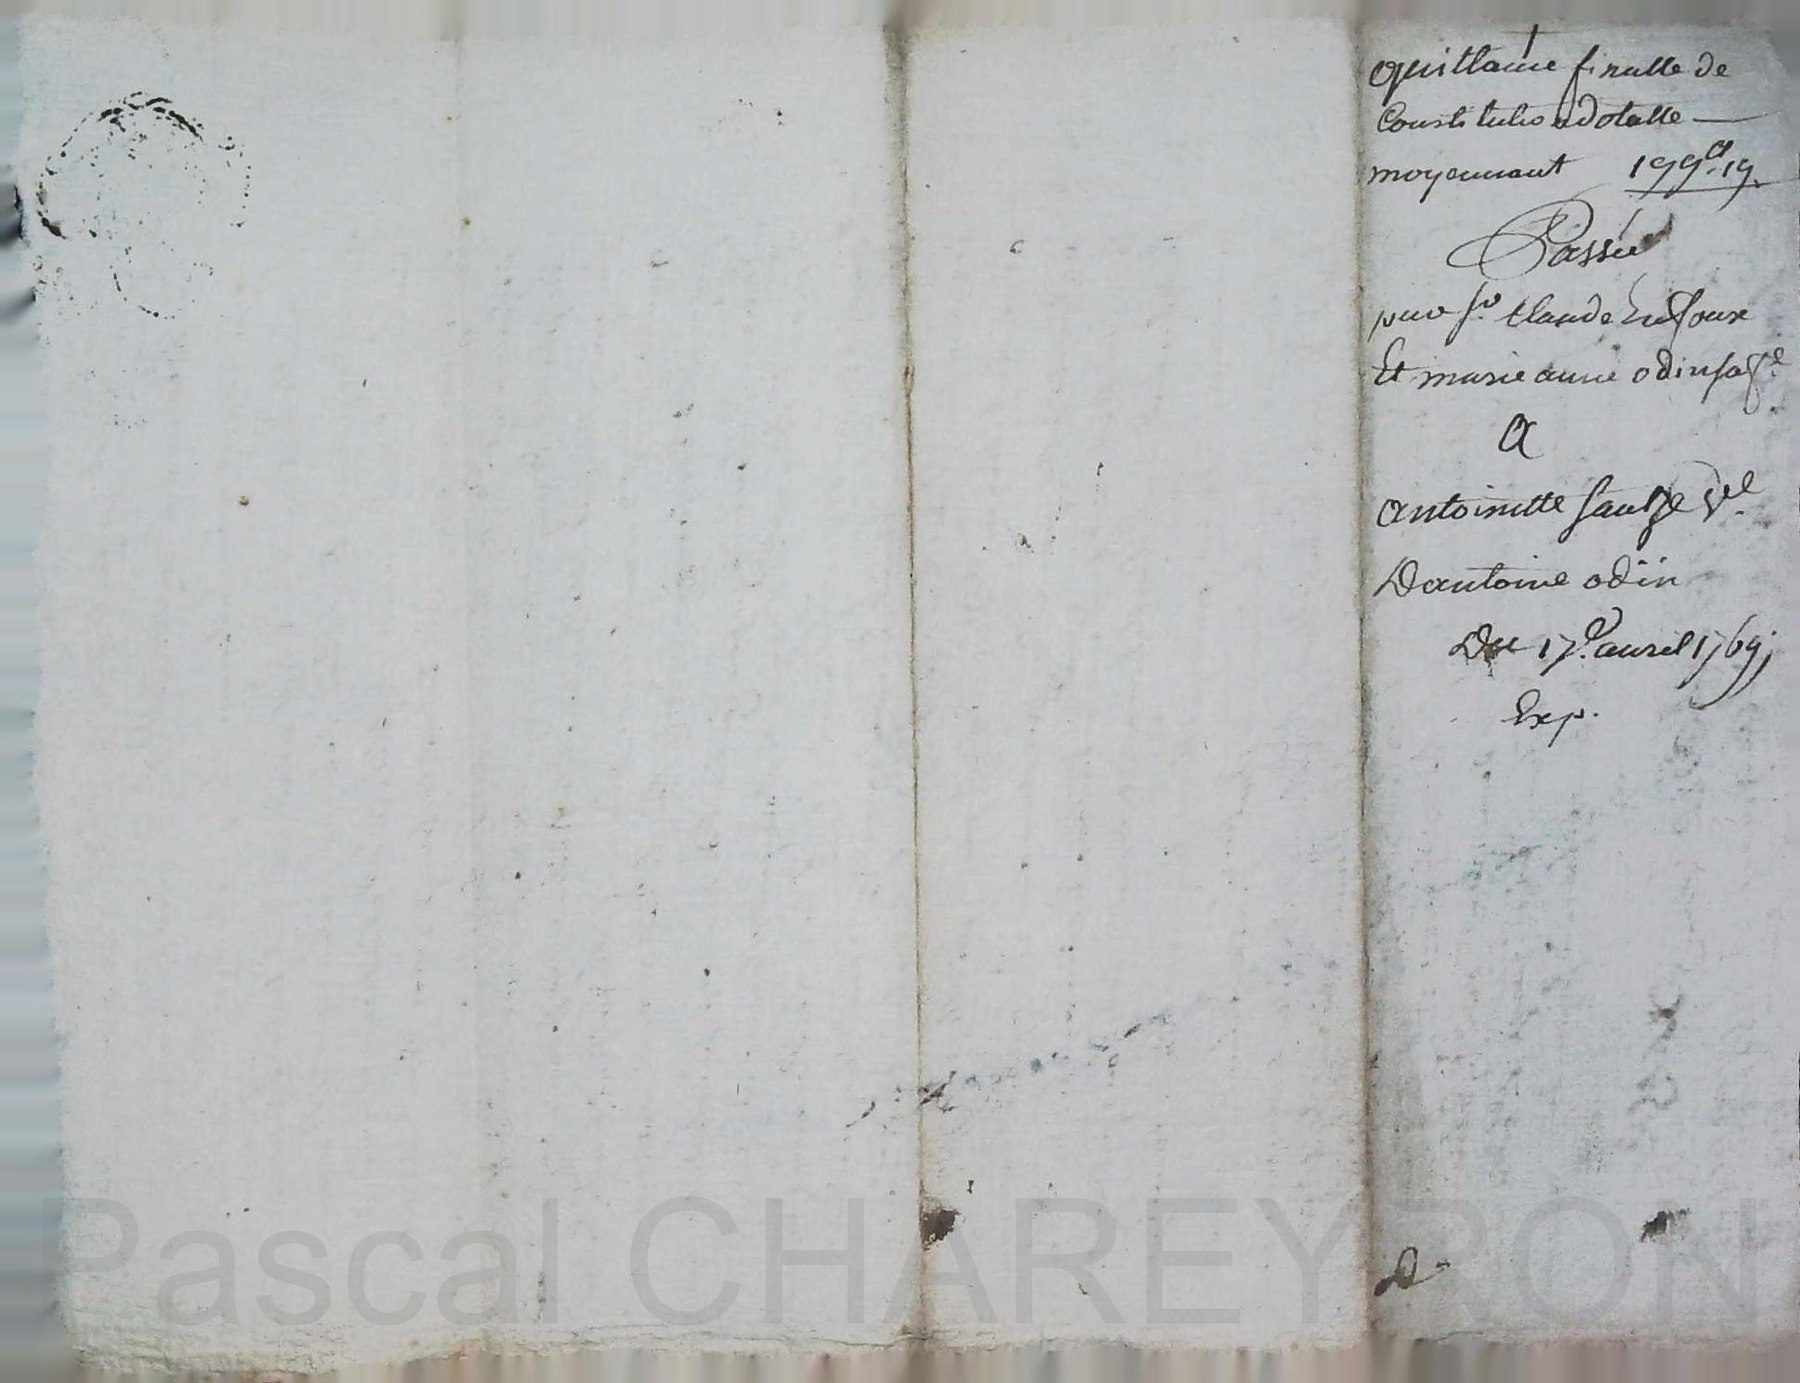 quittance finalle de
Constitution dotalle
moyennant 199# 19
Passée
par Sr. Claude
Et marie anne odin sa fe
A
antoinette sauze ve
D antoine odin
Du 17e. avril 1769
Exp.
Pascal CHAREYRON